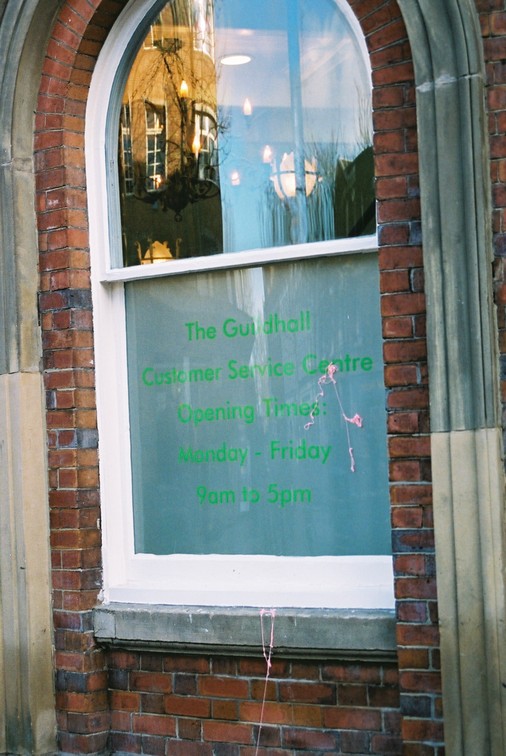 The Guildhall
Customer Service Centre
Opening Times:
Monday - Friday
9am to 5pm